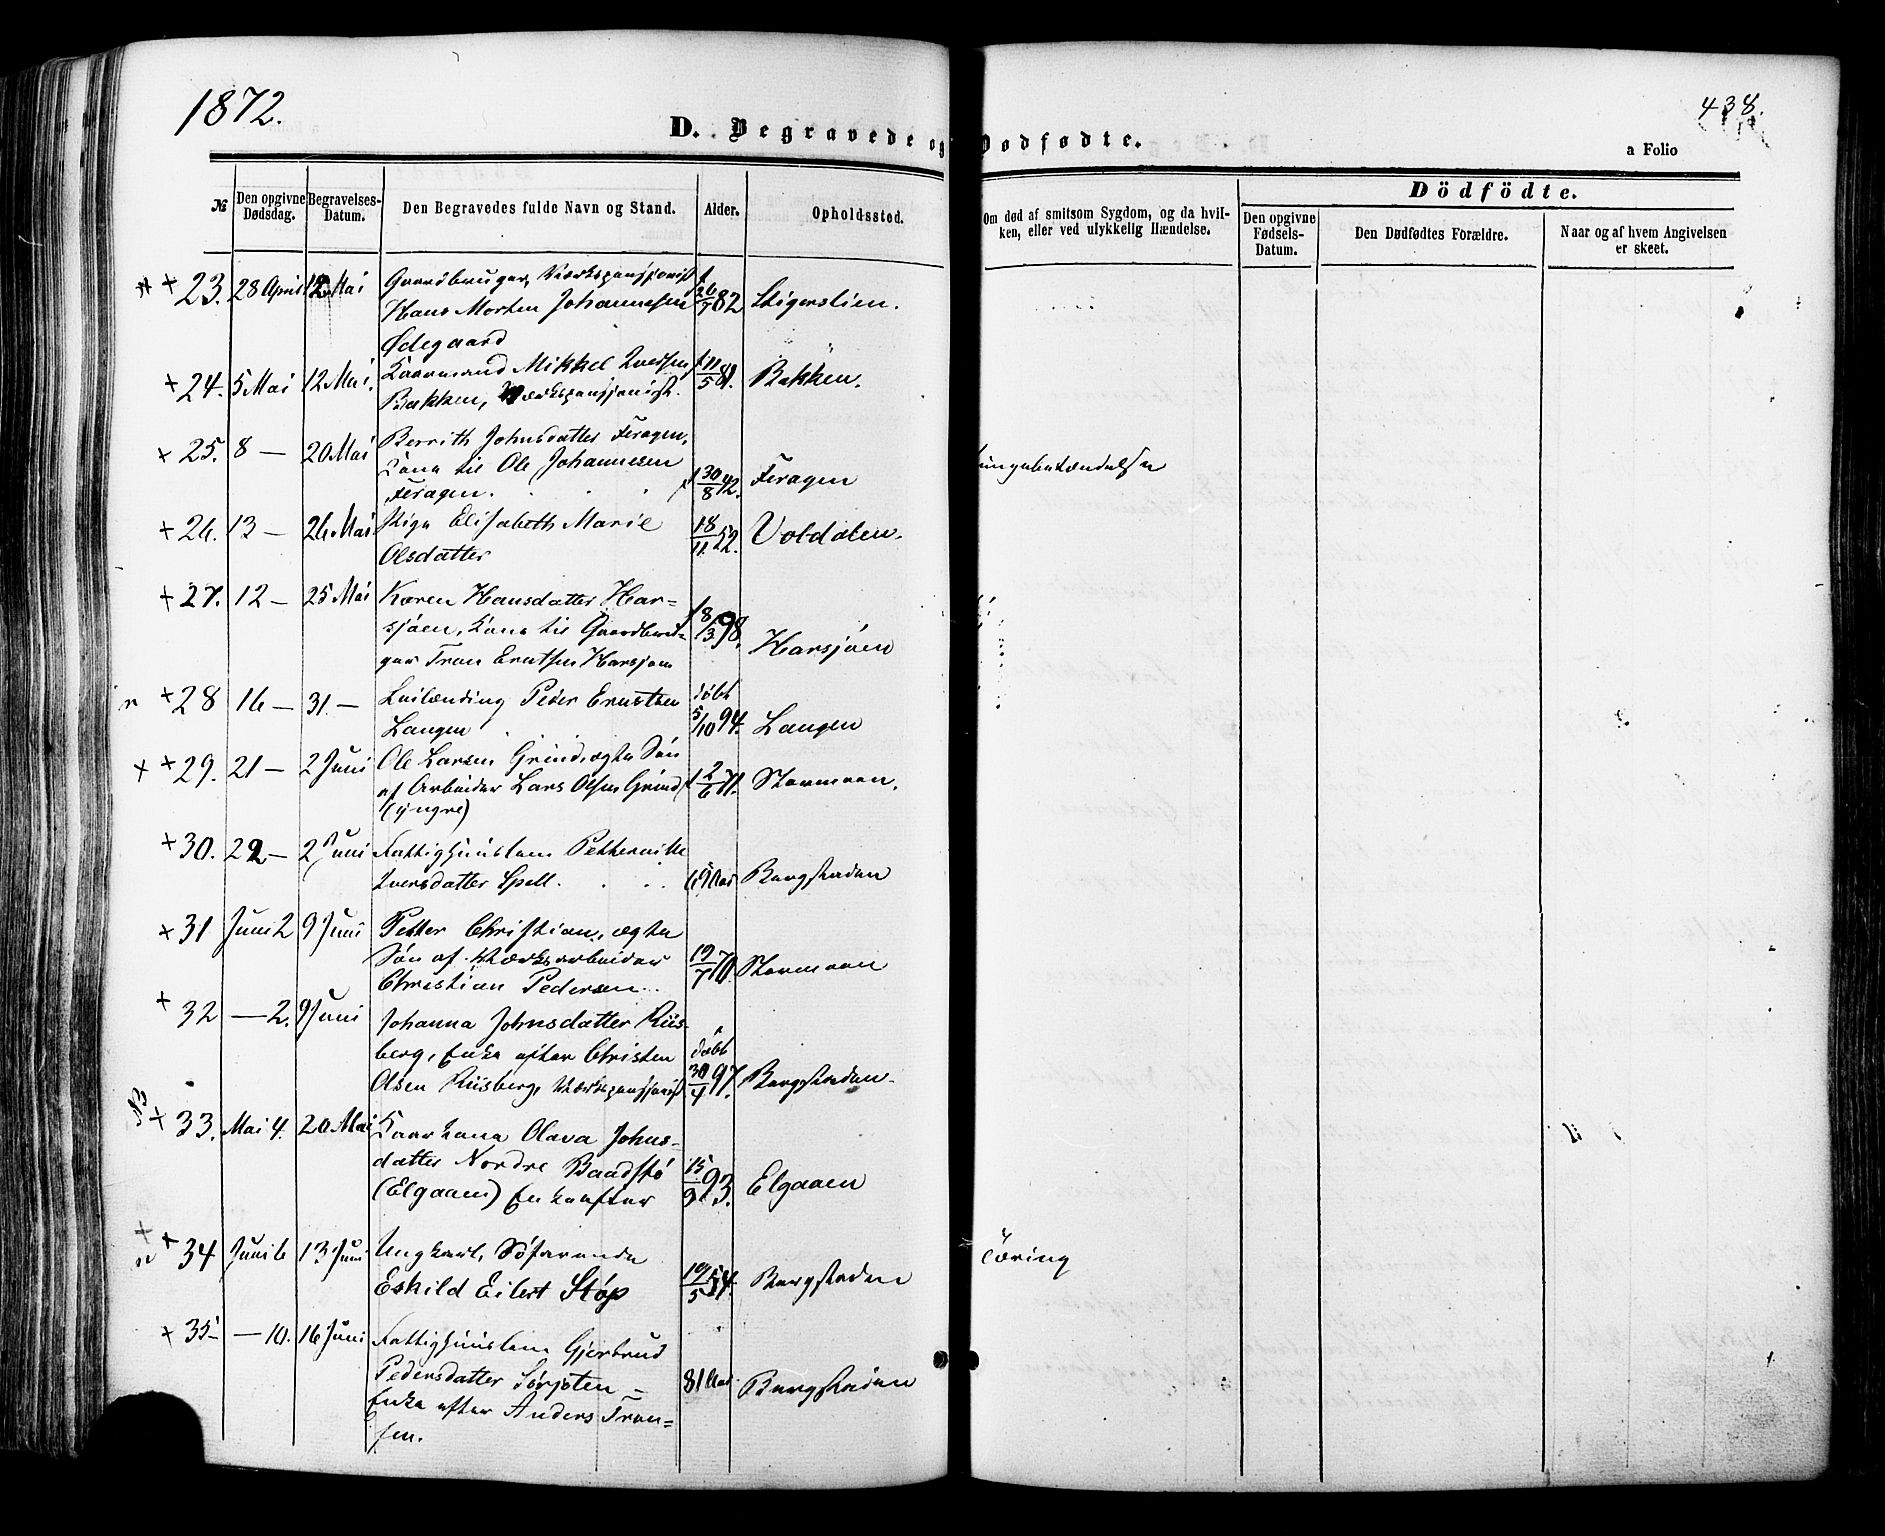 1872.
438.
D. Begravede og Dødfødte.
a Folio
№
Den opgivne Dødsdag.
Begravelses-Datum.
Den Begravedes fulde Navn og Stand.
Alder.
Opholdssted.
Om død af smitsom Sygdom, og da hvil-
ken, eller ved ulykkelig Hændelse.
Dödfödte.
Den opgivne Fødsels-Datum.
Den Dødfødtes Forældre.
Naar og af hvem Angivelsen er skeet.
+ 23. 28 April 12 Mai Gaardbruger, Værkspensjonist
Hans Morten Johannesen 26/7 82 Stigerslien.
Ødegaard
+ 24. 5 Mai 12 Mai. Kaarmand Mikkel Iversen 11/5 81. Bakken.
Bakken, Værkspensjonist.
+ 25. 8 — 20 Mai Berrith Johnsdatter Feragen,
Kone til Ole Johannesen 30/8 42. Feragen
Feragen.
+ 26. 13 — 26 Mai Pige Elisabeth Marie 18/11 52. Voldalen.
Olsdatter
+ 27. 12 — 25 Mai Karen Hansdatter Har=
sjøen, Kone til Gaardbru= 8/3 98. Harsjøen
ger Tron Erntsen Harsjøen
+ 28 16 — 31 — Leilænding Peder Erntsen døbt
Langen 5/10 94. Langen
+ + 29. 21 — 2 Juni Ole Larsen Grind, ægte Søn
af Arbeider Lars Olsen Grind 2/6 71. Stormoen.
(yngre)
+ 30. 22 — 2 Juni Fattighuuslem Petternille
Iversdatter Spell. Bergstaden
+ 31 Juni 2 9 Juni Petter Christian, ægte
Søn af Værksarbeider 19/7 70. Stormoen
Christian Pedersen.
+ 32 — 2. 9 Juni Johanna Johnsdatter Riis=
berg, Enke efter Christen døbt
Olsen Riisberg, Værkspensjonist 30/4 97. Bergstaden.
+ 33. Mai 4. 20 Mai Kaarkone Olava Johns=
datter Nordre Baadstø 15/9 93. Elgaaen
(Elgaaen) Enke efter
+ 34 Juni 6 13 Juni Ungkarl, Søfarende
Eskild Eilert Støp 19/5 54. Bergstaden Tæring
+ 35 — 10. 16 Juni Fattighuuslem Gjertrud
Pedersdatter Sørjoten = 81 Aar. Bergstaden
Enke efter Anders Tron=
sen.
ungebetændelse